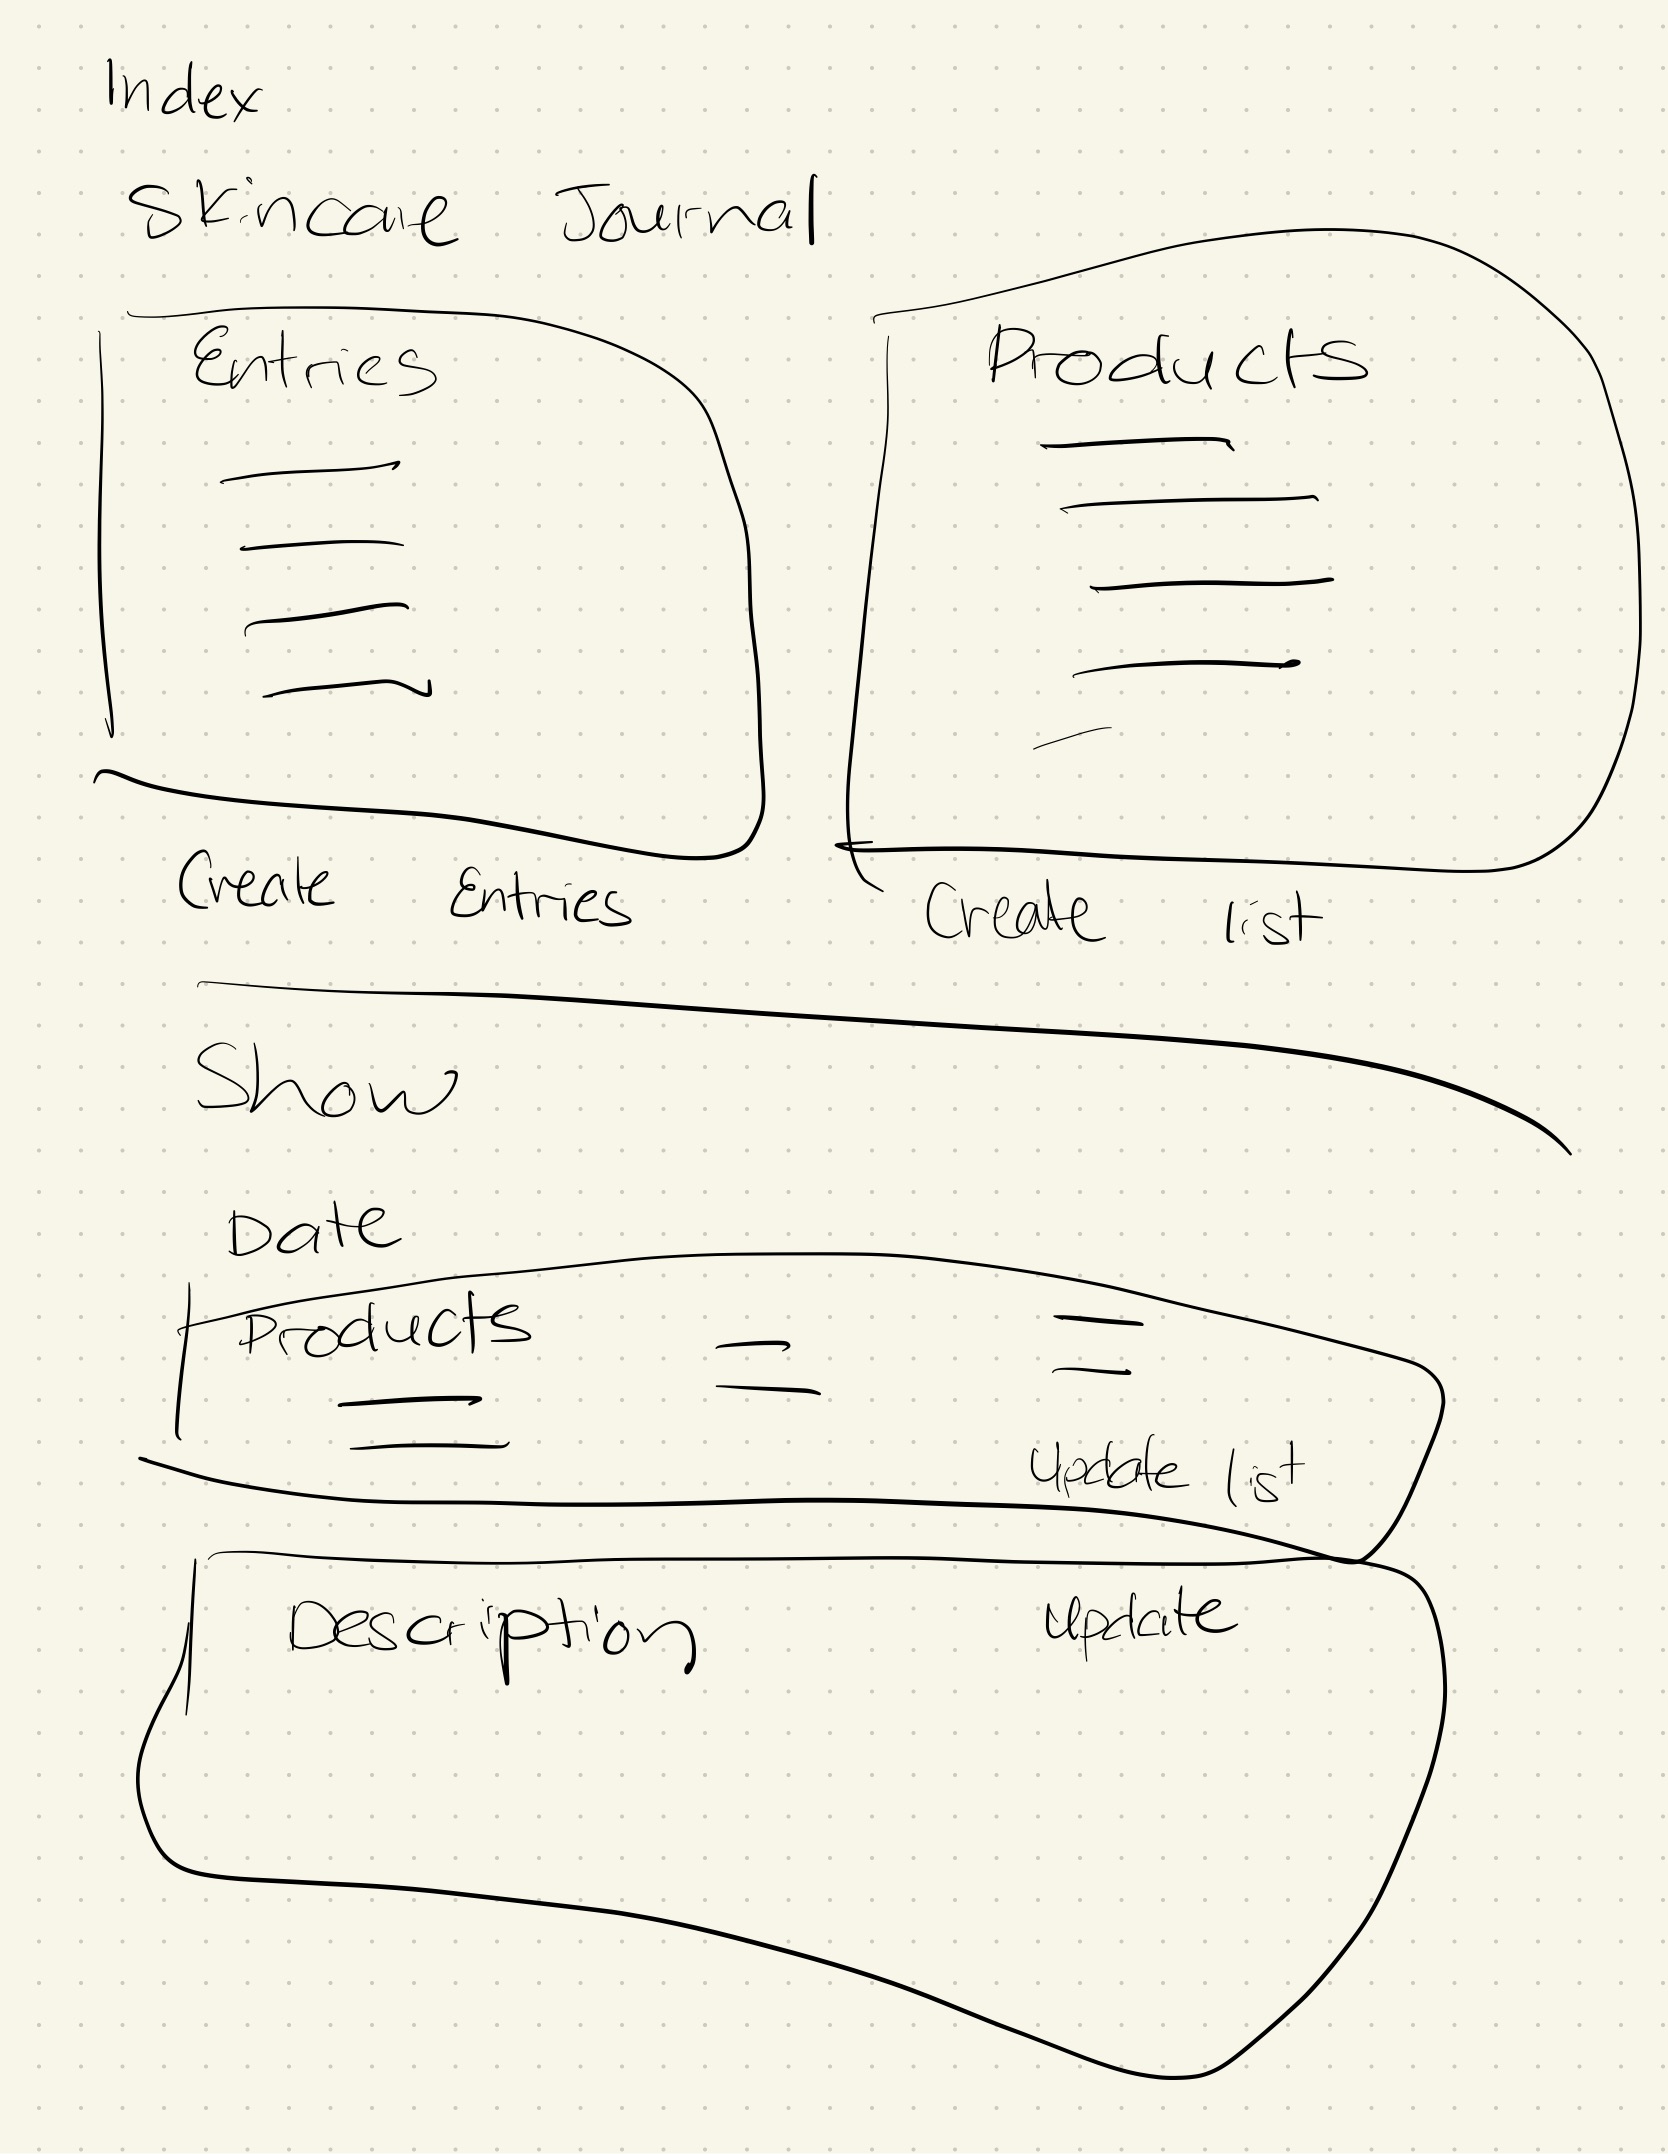 Index
Skincare Journal
Entries
Products
Create Entries
Create list
Show
Date
Products
Update list
Description
Update